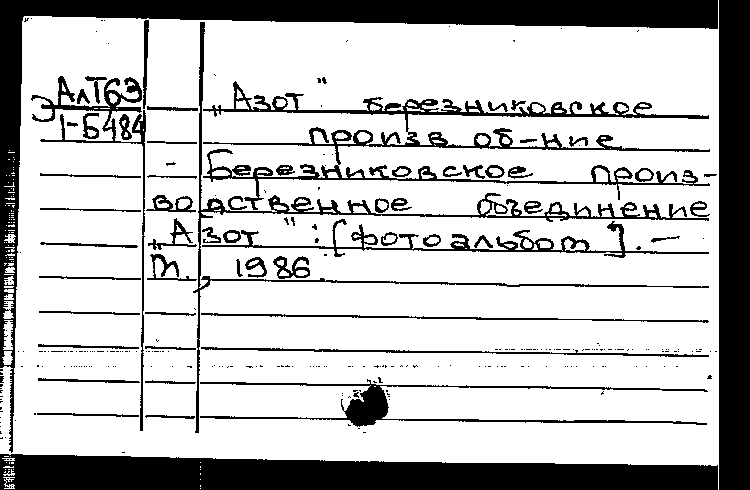 АлТ6Э
Э 1-Б484
„Азот" березниковское
произв об-ние
- Березниковское произ-
водственное объединение
„Азот" : [фотоальбом]. —
М., 1986.